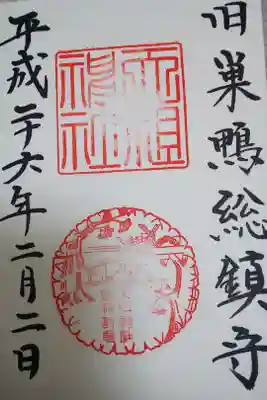 旧巣鴨総鎮守
天祖神社
平成二十六年二月二日